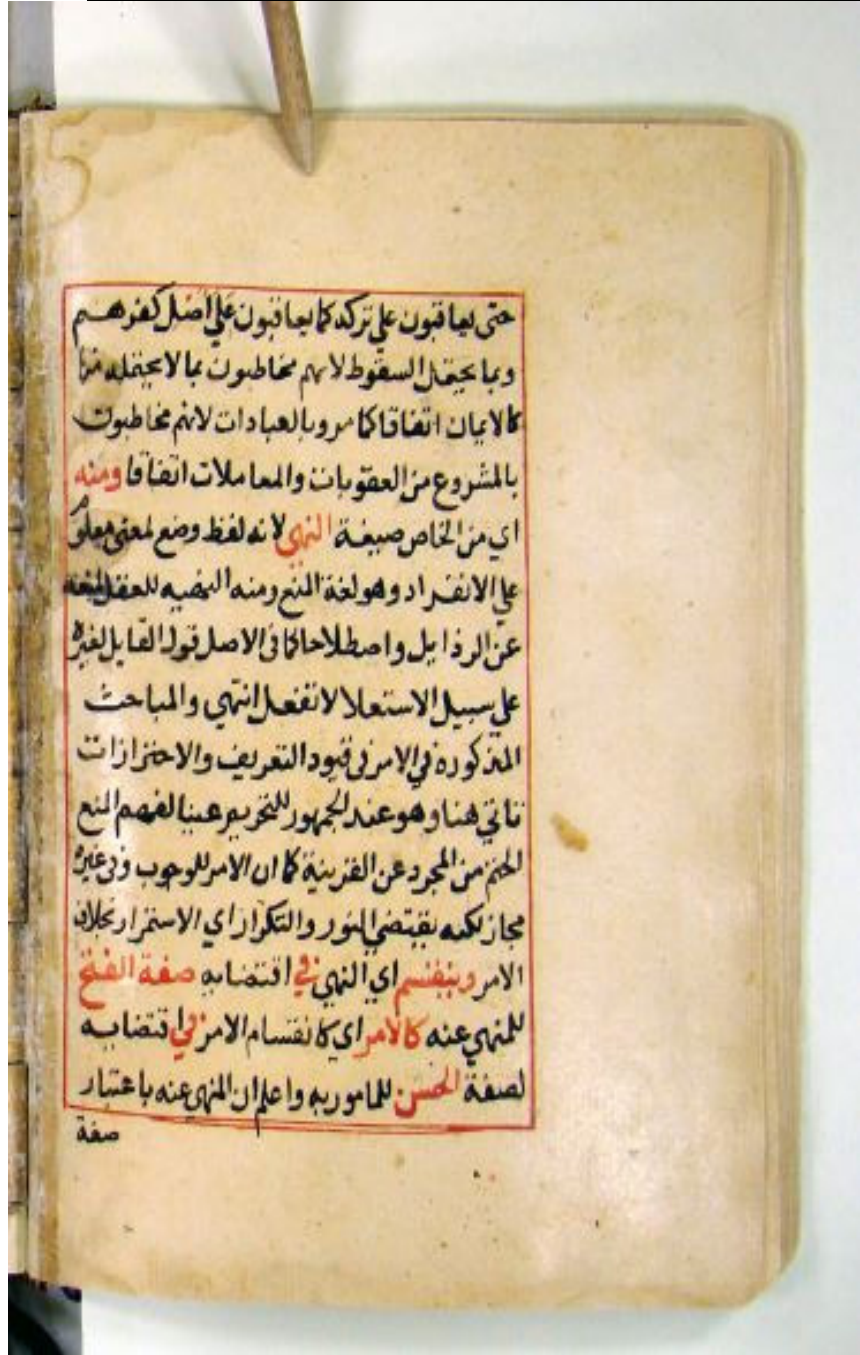 حتى يعاقبون علي تركه كما يعاقبون علي أصل كفرهم
وبما يحتمل السقوط لانهم مخاطبون بما لا يحتمله منها
كالايمان اتفاقا كما مر وبالعبادات لانهم مخاطبون
بالمشروع من العقوبات والمعاملات اتفاقا ومنه
اي من الخاص صيغة النهي لانه لفظ وضع لمعنى معلوم
علي الانفراد وهو لغة المنع ومنه النهية للعقل لمنعه
عن الرذايل واصطلاحا كما في الاصل قول القايل لغيره
علي سبيل الاستعلا لا تفعل انتهي والمباحث
المذكورة في الامر في قيود التعريف والاحترازات
تاتي هنا وهو عند الجمهور للتحريم عينا لفهم المنع
الحتم من المجرد عن القرينة كما ان الامر للوجوب وفي غيره
مجاز لكنه يقتضي الفور والتكرار اي الاستمرار بخلاف
الامر وينقسم اي النهي في اقتضايه صفة القبح
للمنهي عنه كالامر اي كانقسام الامر في اقتضايه
لصفة الحسن للمامور به واعلم ان المنهي عنه باعتبار
صفة